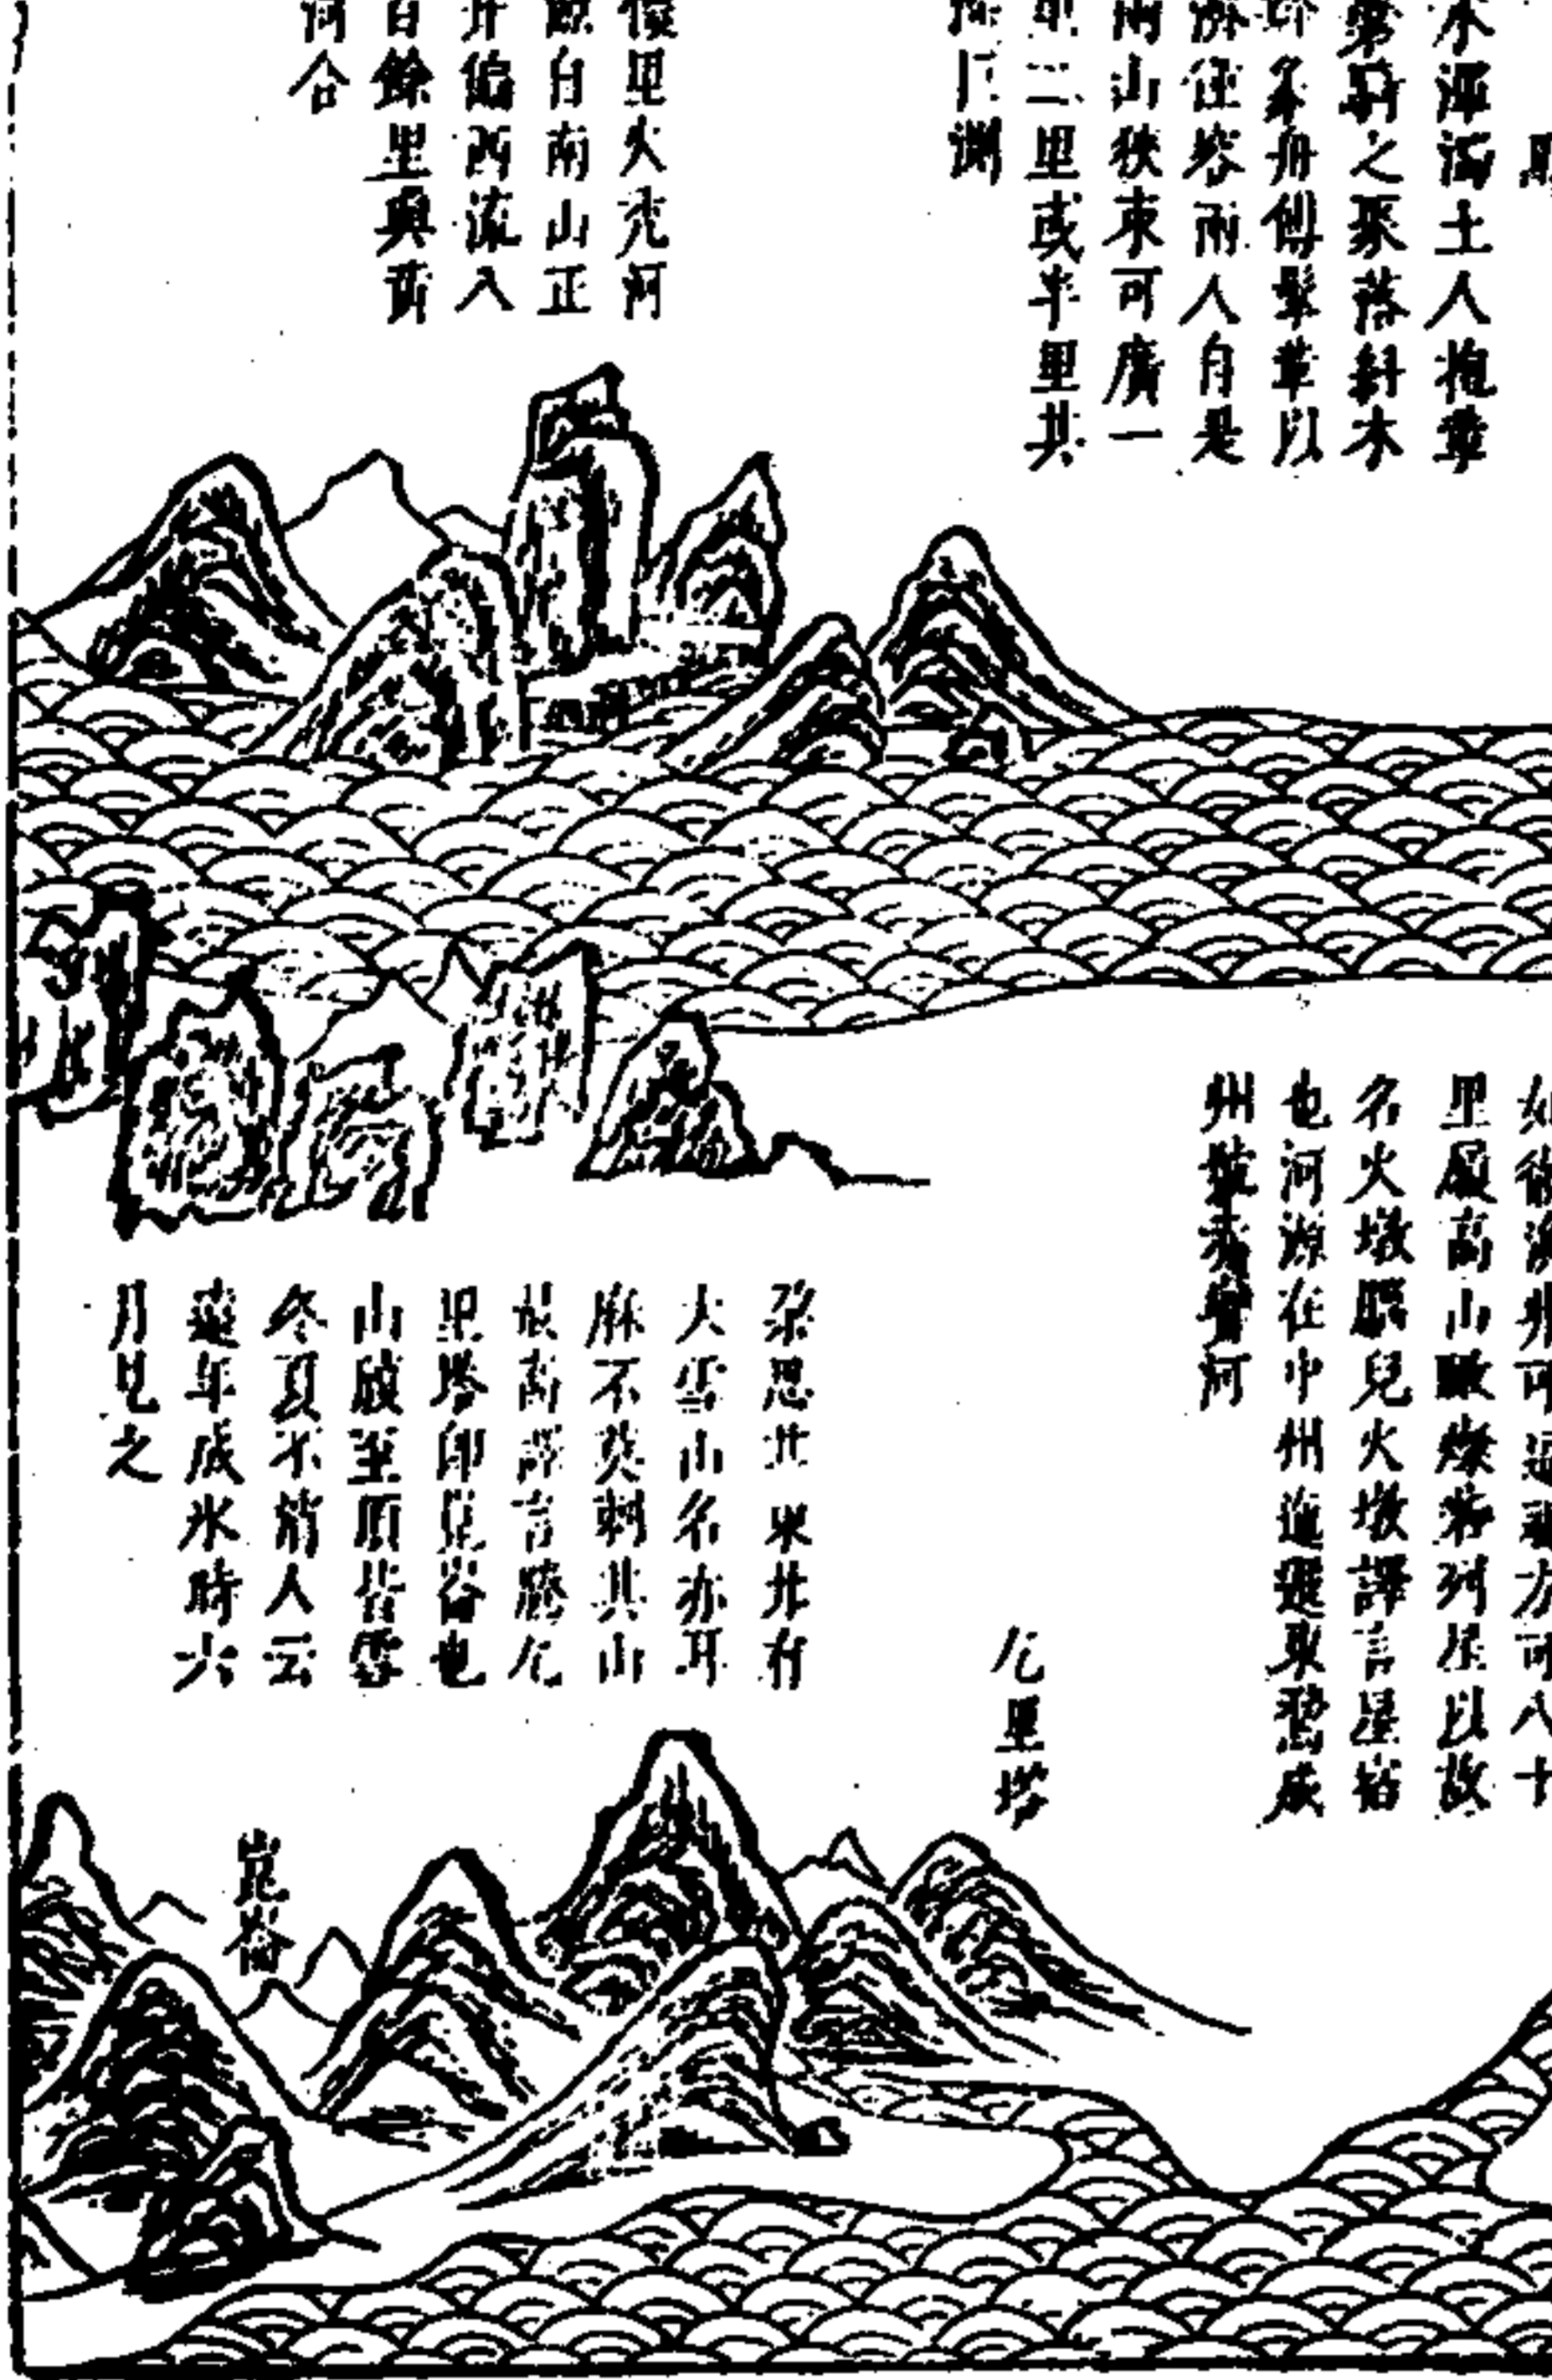 水渾濁土人抱革
囊騎之聚落糾木
幹象舟傅髦革以
濟僅容兩人自是
兩山狹束可廣一
里二里或半里其
深叵測
懷里火禿河
源自南山正
北偏西流八
百餘里與黃
河合
里履高山瞰燦若列星以故
名火墩腦兒火墩譯言星宿
也河源在中州迤邐東鶩成
州號赤賓河
朶思甘東北有
大雪山名亦耳
麻不莫剌其山
最高譯言騰乞
里塔即崑崙也
山腹至頂皆雪
冬夏不消人云
遠年成氷時六
月見之
乞里塔
崑崙